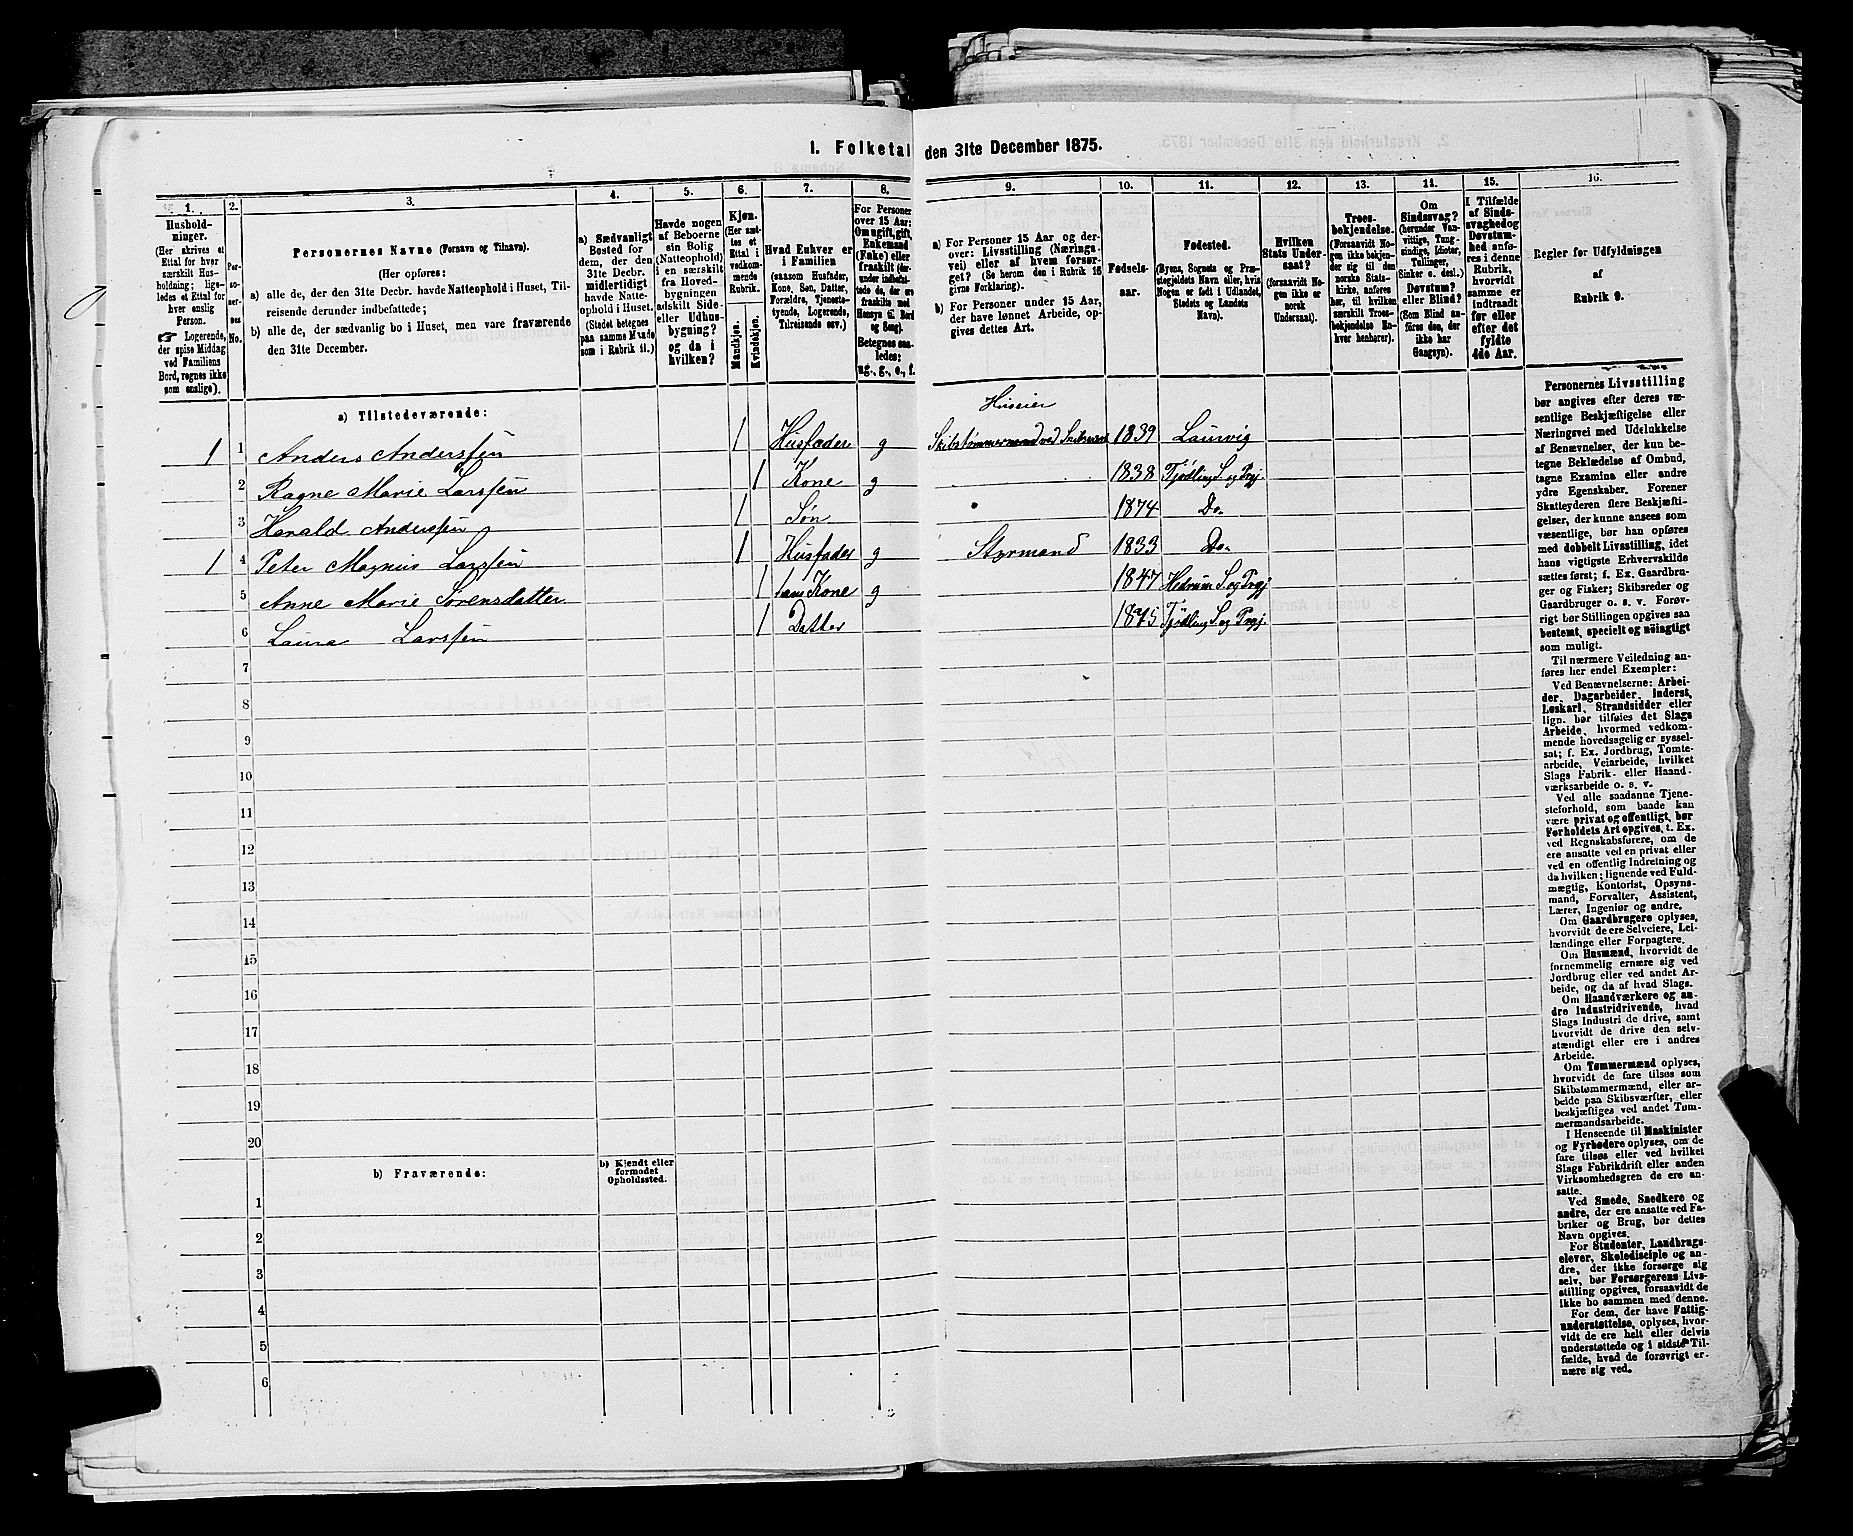 I. Folketal den 31te December 1875.
1. 2. 3. 4. 5. 6. 7. 8. 9. 10. 11. 12. 13. 14. 15. 16.
Hushold-
ninger.
(Her skrives et
Ettal for hver
særskilt Hus-
holdning; lige-
ledes et Ettal for
hver enslig
Person.
☞ Logerende,
der spise Middag
ved Familiens
Bord, regnes ikke
som enslige).
Per-
so-
ner-
nes
No.
Personernes Navne (Fornavn og Tilnavn).
(Her opføres:
a) alle de, der den 31te Decbr. havde Natteophold i Huset, Til-
reisende derunder indbefattede;
b) alle de, der sædvanlig bo i Huset, men vare fraværende
den 31te December.
a) Sædvanligt
Bosted for
dem, der den
31te Decbr.
midlertidigt
havde Natte-
ophold i Huset.
(Stedet betegnes
paa samme Maade
som i Rubrik 11.)
Havde nogen
af Beboerne
sin Bolig
(Natteophold)
i en særskilt
fra Hoved-
bygningen
adskilt Side-
eller Udhus-
bygning?
og da i
hvilken?
Kjøn.
(Her sæt-
tes et
Ettal i
vedkom-
mende
Rubrik.
Mandkjøn.
Kvindekjøn.
Hvad Enhver er
i Familien
(saasom Husfader,
Kone, Søn, Datter,
Forældre, Tjeneste-
tyende, Logerende,
Tilreisende osv.)
For Personer
over 15 Aar:
Om ugift, gift,
Enkemand
(Enke) eller
fraskilt (der-
under indbefat-
tede de, der ere
fraskilte med
Hensyn til Bord
og Seng).
Betegnes saa-
ledes:
ug., g., e., f.
a) For Personer 15 Aar og der-
over: Livsstilling (Nærings-
vei) eller af hvem forsør-
get? (Se herom den i Rubrik 16
givne Forklaring).
b) For Personer under 15 Aar,
der have lønnet Arbeide, op-
gives dettes Art.
Fødsels-
aar.
Fødested.
(Byens, Sognets og Præ-
stegjeldets Navn eller, hvis
Nogen er født i Udlandet,
Stedets og Landets
Navn).
Hvilken
Stats Under-
saat?
(forsaavidt No-
gen ikke er
norsk
Undersaat).
Troes-
bekjendelse.
(Forsaavidt No-
gen ikke bekjen-
der sig til den
norske Stats-
kirke, anføres
her, til hvilken
særskilt Troes-
bekjendelse En-
hver henhører).
Om
Sindssvag?
(herunder Van-
vittige, Tung-
sindige, Idioter,
Tullinger,
Sinker o. desl.)
Døvstum?
eller Blind?
(Som Blind an-
føres den, der
ikke har
Gangsyn).
I Tilfælde
af Sinds-
svaghed og
Døvstum-
hed anfø-
res i denne
Rubrik,
hvorvidt
samme er
indtraadt
før eller
efter det
fyldte
4de Aar.
Regler for Udfyldningen
af
Rubrik 9.
a) Tilstedeværende:
Huseier
1 1 Anders Andersen 1 Husfader g Skibstømmermand ved Skibsværft 1839 Laurvig
2 Ragne Marie Larssen 1 Kone g 1838 Tjødling S. og Prgj.
3 Harald Anderssen 1 Søn 1874 Do
1 4 Peter Magnus Larssen 1 Husfader g Styrmand 1833 Do
5 Anne Marie Sørensdatter 1 hans Kone g 1847 Hedrum S. og Prgj
6 Laura Larssen 1 Datter 1875 Tjødling S. og Prgj.
7
8
9
10
11
12
13
14
15
16
17
18
19
20
b) Fraværende:
b) Kjendt eller
formodet
Opholdssted.
1
2
3
4
5
6
Personernes Livsstilling
bør angives efter deres væ-
sentlige Beskjæftigelse eller
Næringsvei med Udelukkelse
af Benævnelser, der kun be-
tegne Beklædelse af Ombud,
tagne Examina eller andre
ydre Egenskaber. Forener
Skatteyderen flere Beskjæfti-
gelser, der kunne ansees som
væsentlige, bør han opføres
med dobbelt Livsstilling, idet
hans vigtigste Erhvervskilde
sættes først; f. Ex. Gaardbru-
ger og Fisker; Skibsreder og
Gaardbruger o. s. v. Forøv-
rigt bør Stillingen opgives saa
bestemt, specielt og nöiagtigt
som muligt.
Til nærmere Veiledning an-
føres her endel Exempler:
Ved Benævnelserne: Arbei-
der, Dagarbeider, Inderst,
Løskarl, Strandsidder eller
lign. bør tilføies det Slags
Arbeide, hvormed vedkom-
mende hovedsagelig er syssel-
sat; f. Ex. Jordbrug, Tomte-
arbeide, Veiarbeide, hvilket
Slags Fabrik- eller Haand-
værksarbeide o. s. v.
Ved alle saadanne Tjene-
steforhold, som baade kan
være privat og offentligt, bør
Forholdets Art opgives, t. Ex.
ved Regnskabsførere, om de
ere ansatte ved en privat eller
ved en offentlig Indretning og
da hvilken; lignende ved Fuld-
mægtig, Kontorist, Opsyns-
mand, Forvalter, Assistent,
Lærer, Ingeniør og andre.
Om Gaardbrugere oplyses,
hvorvidt de ere Selveiere, Lei-
lændinge eller Forpagtere.
Om Husmænd, hvorvidt de
fornemmelig ernære sig ved
Jordbrug eller ved andet Ar-
beide, og da af hvad Slags.
Om Haandværkere og an-
dre Industridrivende, hvad
Slags Industri de drive, samt
hvorvidt de drive den selv-
stændigt eller ere i andres
Arbeide.
Om Tømmermænd oplyses,
hvorvidt de fare tilsøs som
Skibstømmermænd, eller ar-
beide paa Skibsværfter, eller
beskjæftiges ved andet Tøm-
mermandsarbeide.
I Henseende til Maskinister
og Fyrbødere oplyses, om de
fare tilsøs eller ved hvilket
Slags Fabrikdrift eller anden
Virksomhedsgren de ere an-
satte.
Ved Smede, Snedkere og
andre, der ere ansatte ved Fa-
briker og Brug, bør dettes
Navn opgives.
For Studenter, Landbrugs-
elever, Skoledisciple og an-
dre, der ikke forsørge sig
selv, bør Forsørgerens Livs-
stilling opgives, forsaavidt de
ikke bo sammen med denne.
For dem, der have Fattig-
understøttelse, oplyses, hvor-
vidt de ere helt eller delvis
understøttede og i sidste Til-
fælde, hvad de forøvrigt er-
nære sig ved.